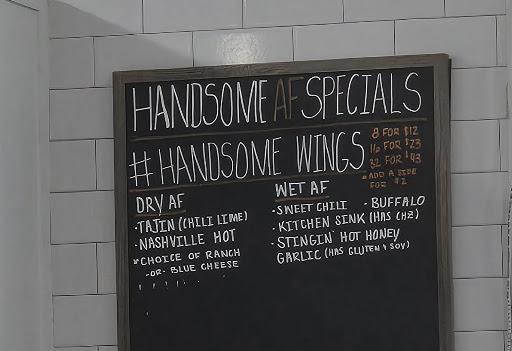 HANDSOME AF SPECIALS
# HANDSOME WINGS
8 FOR $12
16 FOR $23
32 FOR $43
ADD A SIDE
FOR $2
DRY AF
· TAJIN (CHILI LIME)
· NASHVILLE HOT
* CHOICE OF RANCH
-OR- BLUE CHEESE
WET AF
· SWEET CHILI · BUFFALO
· KITCHEN SINK (HAS CHZ)
· STINGIN' HOT HONEY
GARLIC (HAS GLUTEN & SOY)